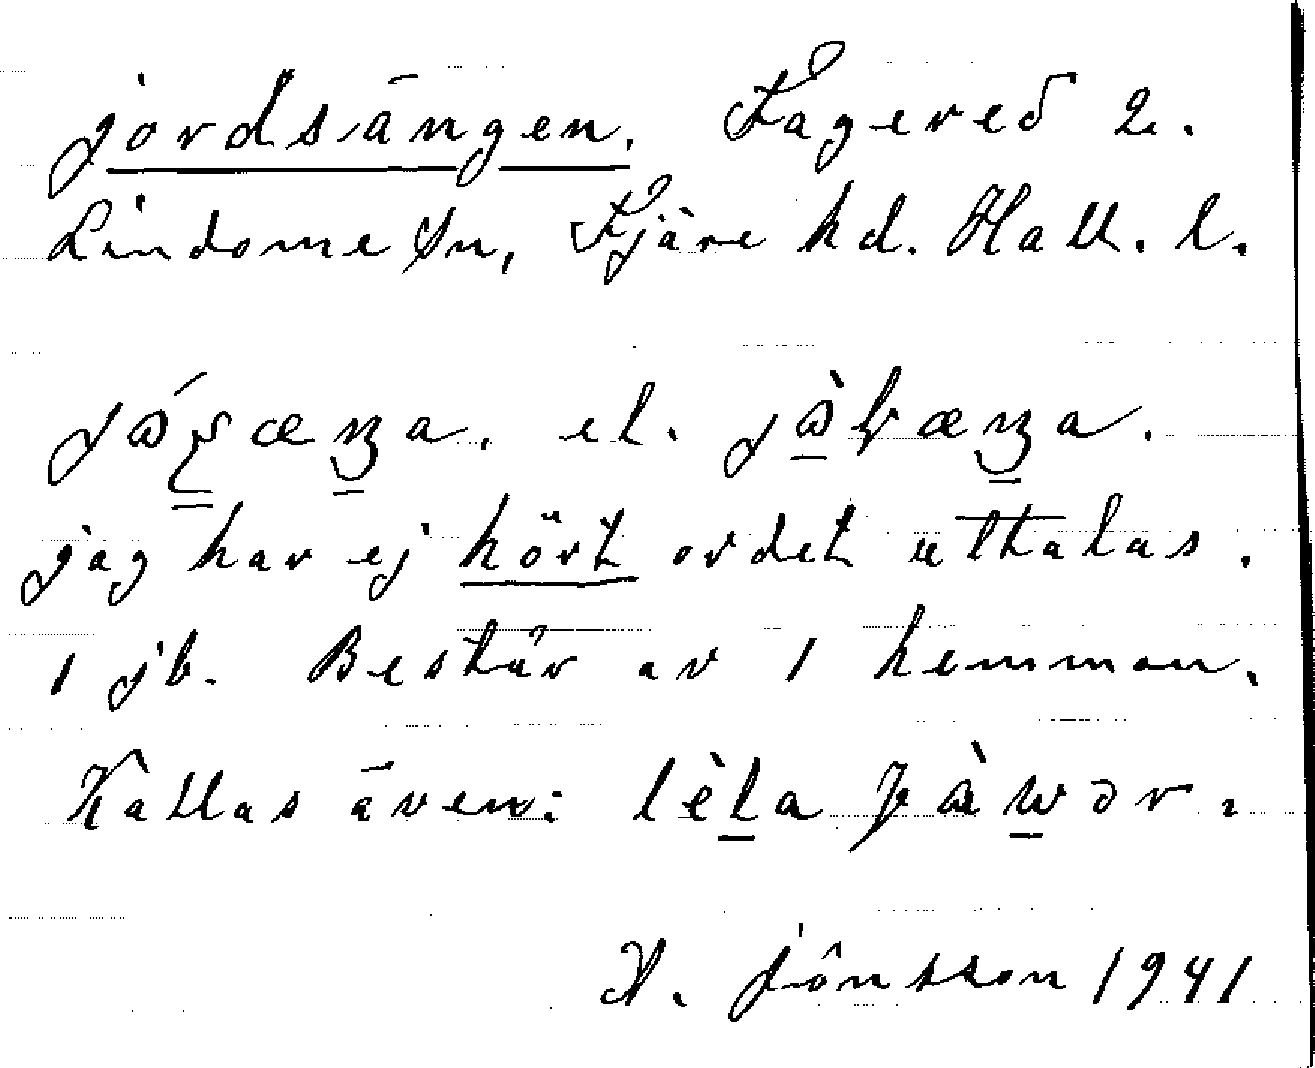 jordsängen. Fagered 2.
Lindome sn, Fjäre hd. Hall. l.
el.
jag har ej hört ordet uttalas.
1 jb. Består av 1 hemman.
Kallas även:
H. Jönsson 1941